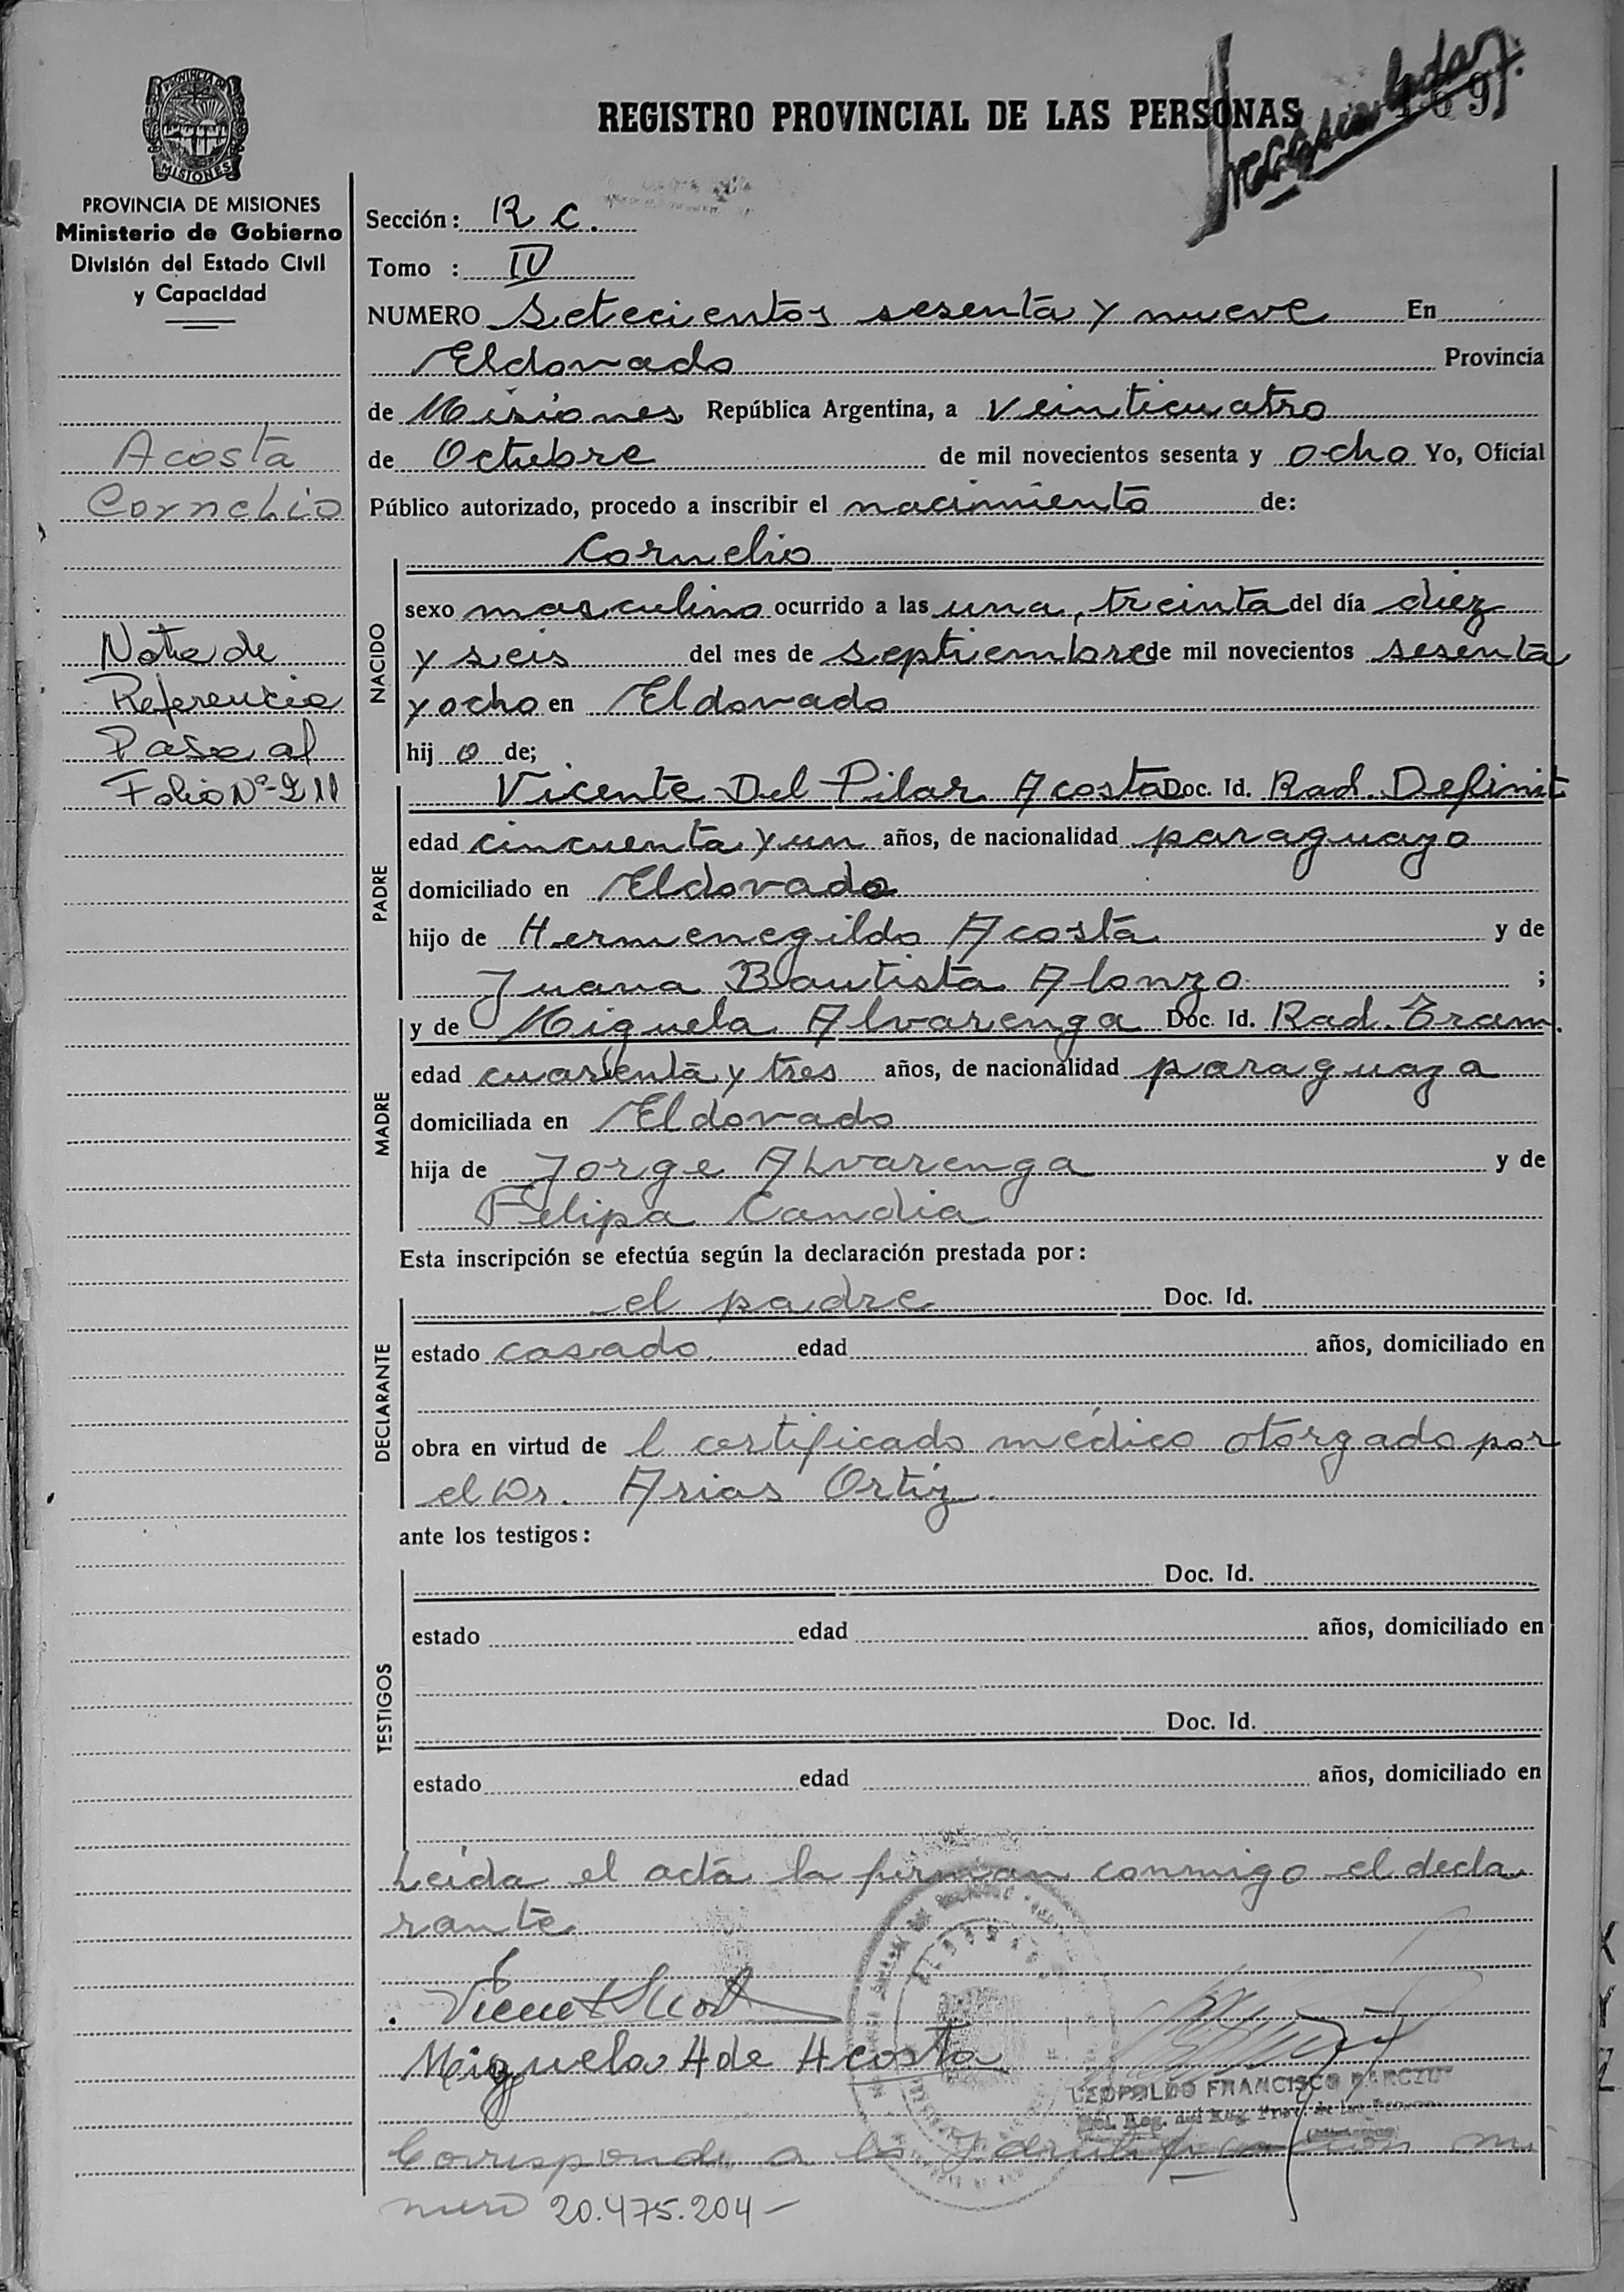 PROVINCIA DE
MISIONES
PROVINCIA DE MISIONES
Ministerio de Gobierno
División del Estado Civil
y Capacidad
Acosta
Cornelio
Nota de
Referencia
Pase al
Folio Nº 211
REGISTRO PROVINCIAL DE LAS PERSONAS
Sección: R C.
Tomo : IV
NUMERO Setecientos sesenta y nueve En
Eldorado Provincia
de Misiones República Argentina, a veinticuatro
de Octubre de mil novecientos sesenta y ocho Yo, Oficial
Público autorizado, procedo a inscribir el nacimiento de:
NACIDO
Cornelio
sexo masculino ocurrido a las una, treinta del día diez
y seis del mes de septiembre de mil novecientos sesenta
y ocho en Eldorado
hij o de;
PADRE
Vicente Del Pilar Acosta Doc. Id. Rad. Definit
edad cincuenta y un años, de nacionalidad paraguayo
domiciliado en Eldorado
hijo de Hermenegildo Acosta y de
Juana Bautista Alonzo ;
MADRE
y de Miguela Alvarenga Doc. Id. Rad. Tram.
edad cuarenta y tres años, de nacionalidad paraguaya
domiciliada en Eldorado
hija de Jorge Alvarenga y de
Felipa Candia
Esta inscripción se efectúa según la declaración prestada por:
DECLARANTE
el padre Doc. Id.
estado casado edad años, domiciliado en
obra en virtud de l certificado médico otorgado por
el Dr. Arias Ortiz
ante los testigos:
TESTIGOS
Doc. Id.
estado edad años, domiciliado en
Doc. Id.
estado edad años, domiciliado en
Leída el acta la firman conmigo el decla
rante
Miguela A de Acosta
LEOPOLDO FRANCISCO
Corresponde a la
mero 20.475.204-